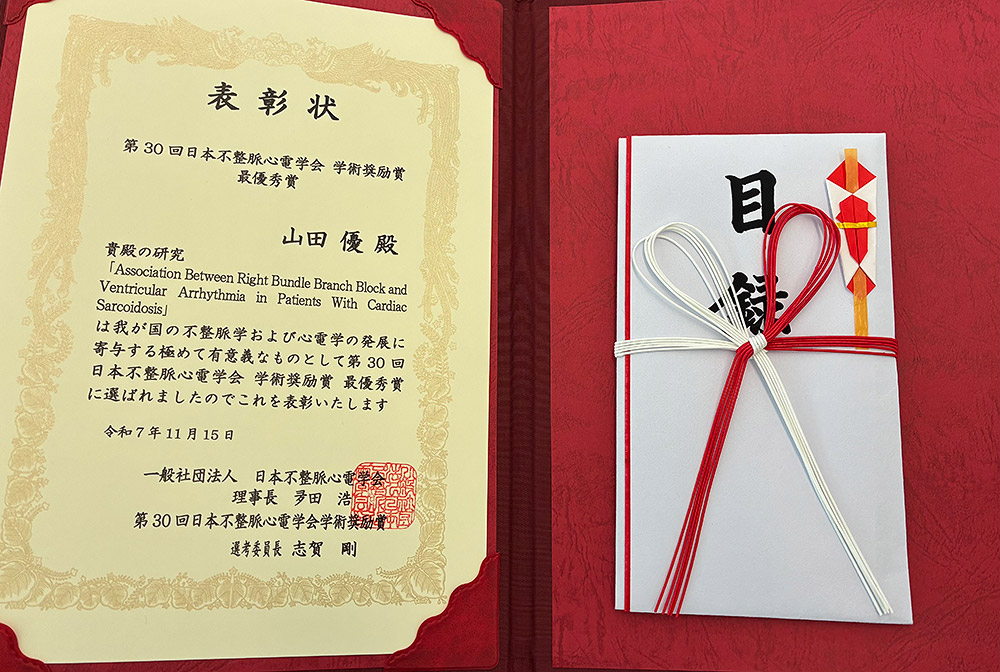 表彰状
第30回日本不整脈心電学会 学術奨励賞
最優秀賞
山田 優 殿
貴殿の研究
「Association Between Right Bundle Branch Block and
Ventricular Arrhythmia in Patients With Cardiac
Sarcoidosis」
は我が国の不整脈学および心電学の発展に
寄与する極めて有意義なものとして第30回
日本不整脈心電学会 学術奨励賞 最優秀賞
に選ばれましたのでこれを表彰いたします
令和7年11月15日
一般社団法人 日本不整脈心電学会
理事長 夛田 浩
第30回日本不整脈心電学会学術奨励賞
選考委員長 志賀 剛
目録